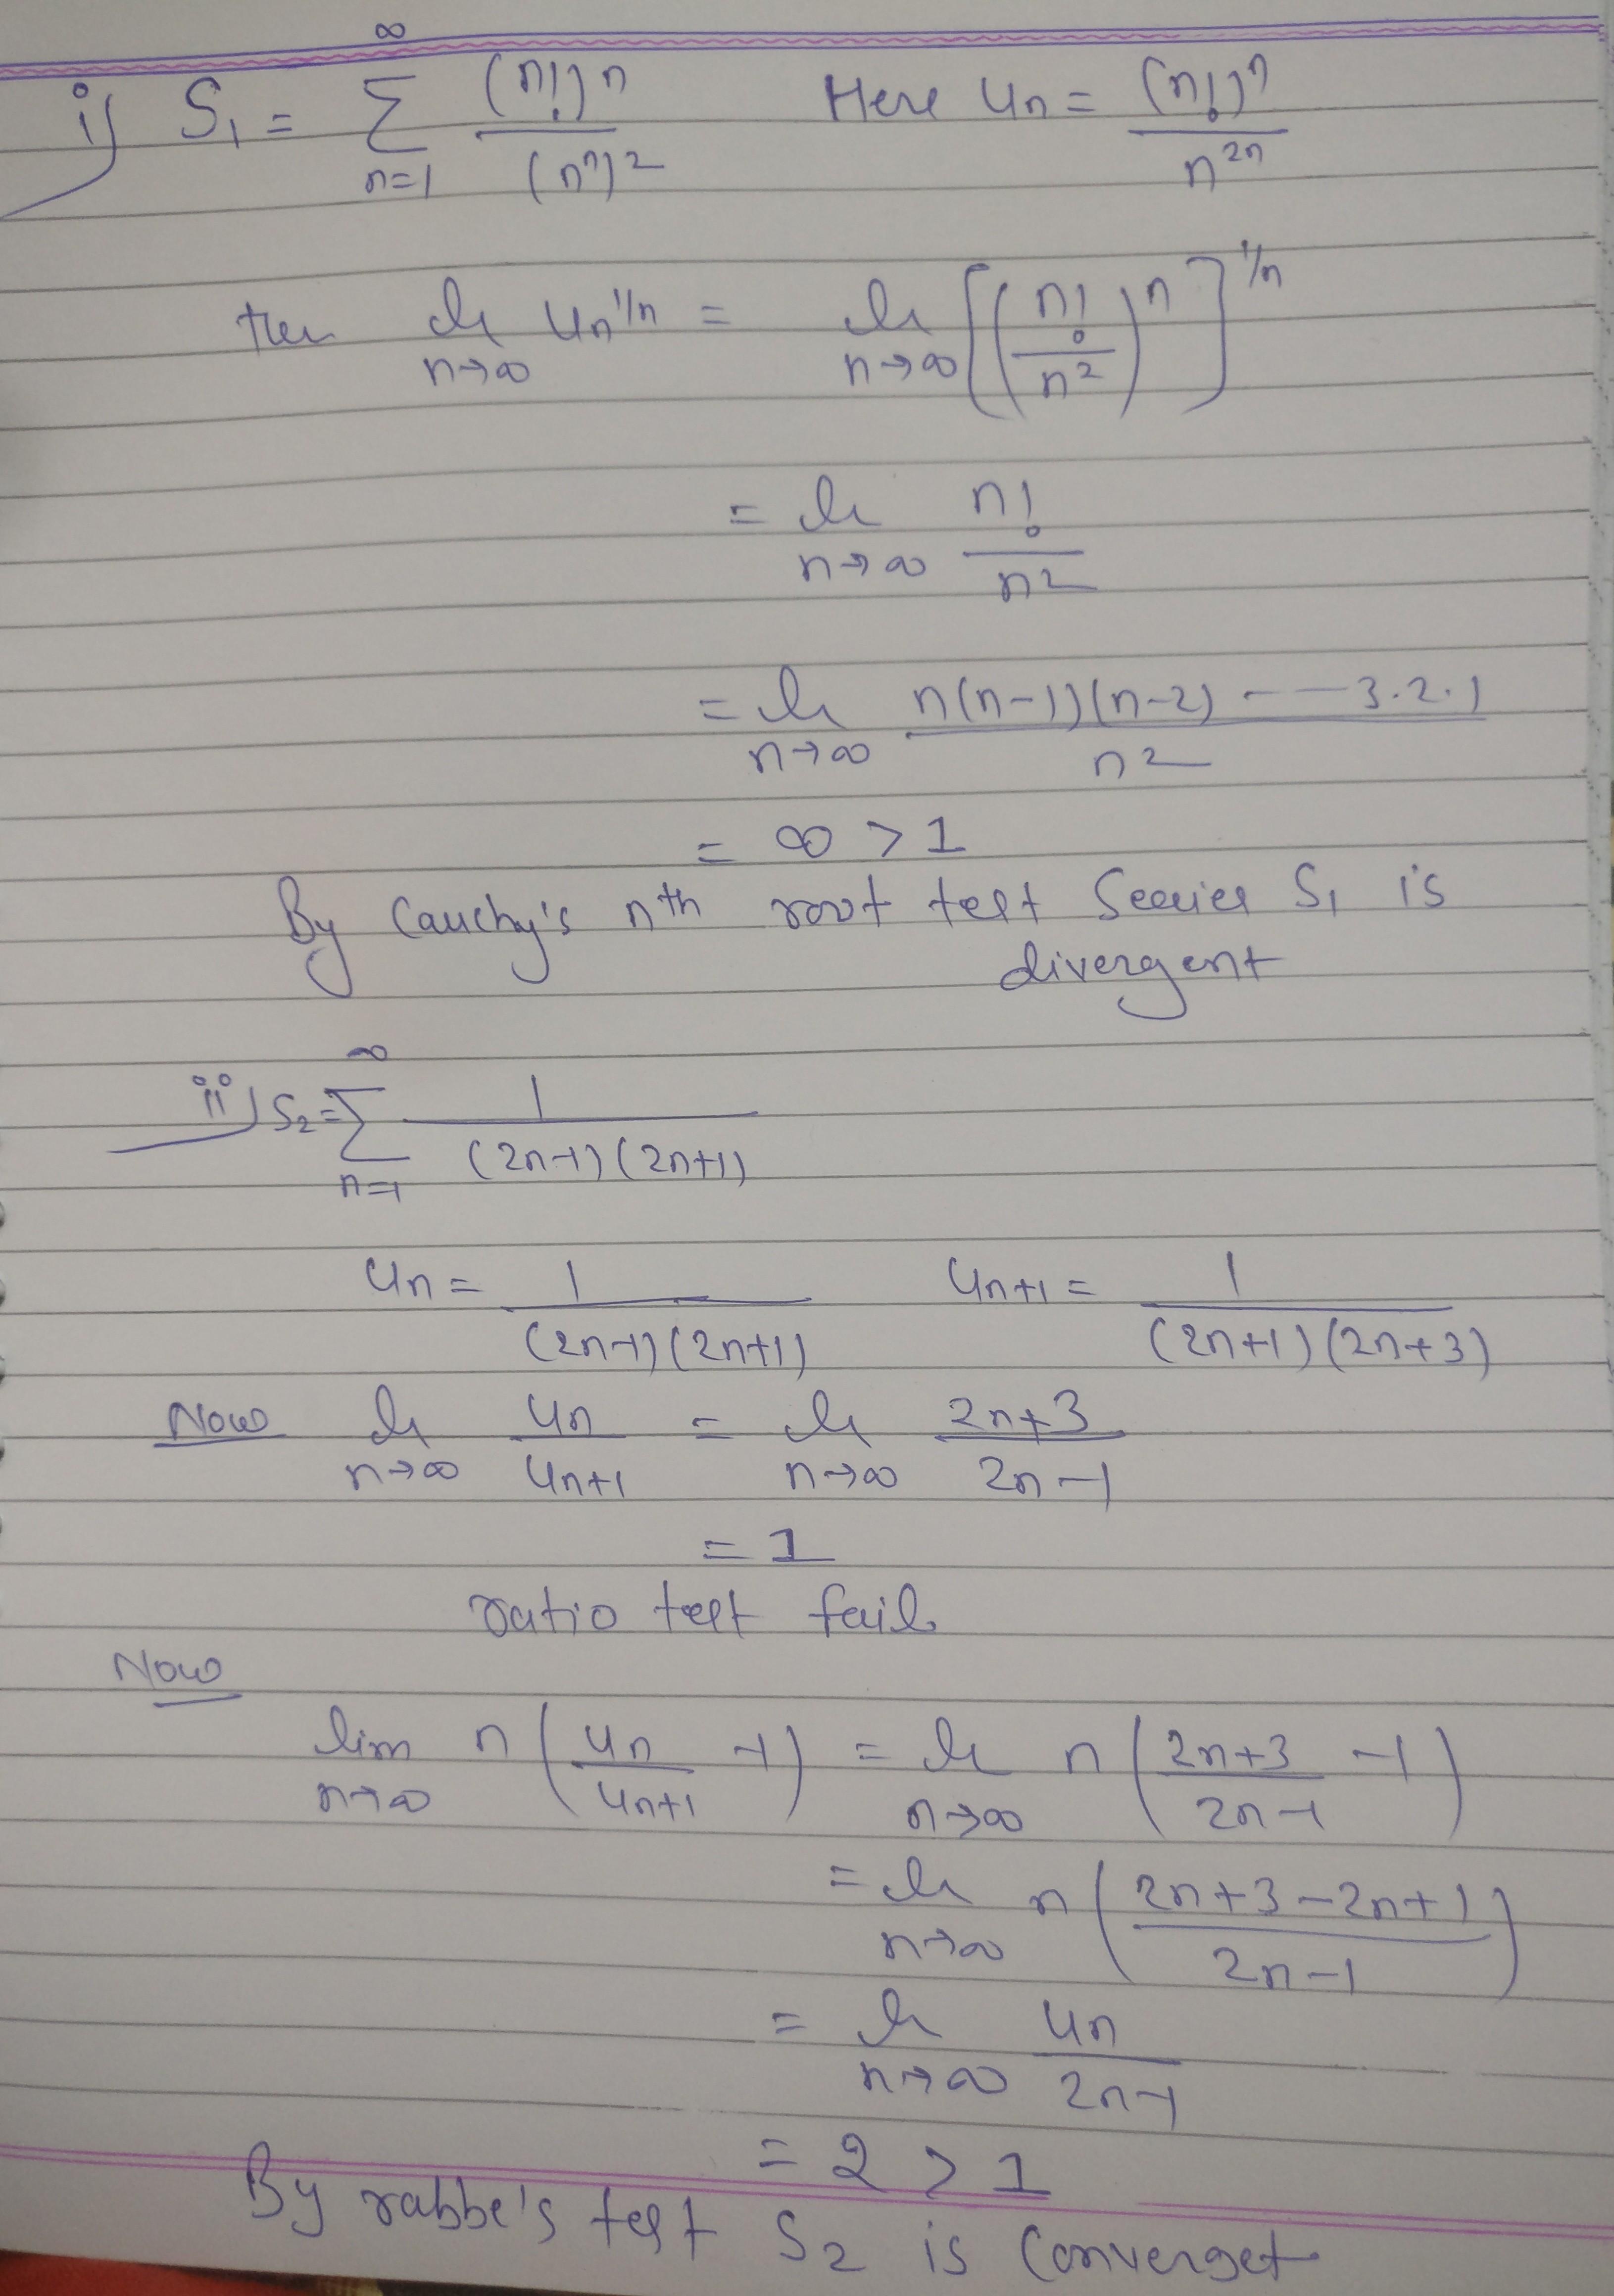 i) S₁ = ∑_{n=1}^{∞} (n!)ⁿ / (nⁿ)² Here uₙ = (n!)ⁿ / n²ⁿ
then lim_{n→∞} uₙ^{1/n} = lim_{n→∞} [(n! / n²)ⁿ]^{1/n}
= lim_{n→∞} n! / n²
= lim_{n→∞} n(n-1)(n-2) --- 3.2.1 / n²
= ∞ > 1
By Cauchy's nth root test Series S₁ is
divergent
ii) S₂ = ∑_{n=1}^{∞} 1 / (2n-1)(2n+1)
uₙ = 1 / (2n-1)(2n+1) uₙ₊₁ = 1 / (2n+1)(2n+3)
Now lim_{n→∞} uₙ / uₙ₊₁ = lim_{n→∞} 2n+3 / 2n-1
= 1
ratio test fail
Now
lim_{n→∞} n(uₙ / uₙ₊₁ - 1) = lim_{n→∞} n(2n+3 / 2n-1 - 1)
= lim_{n→∞} n(2n+3-2n+1 / 2n-1)
= lim_{n→∞} 4n / 2n-1
= 2 > 1
By rabbe's test S₂ is Converget